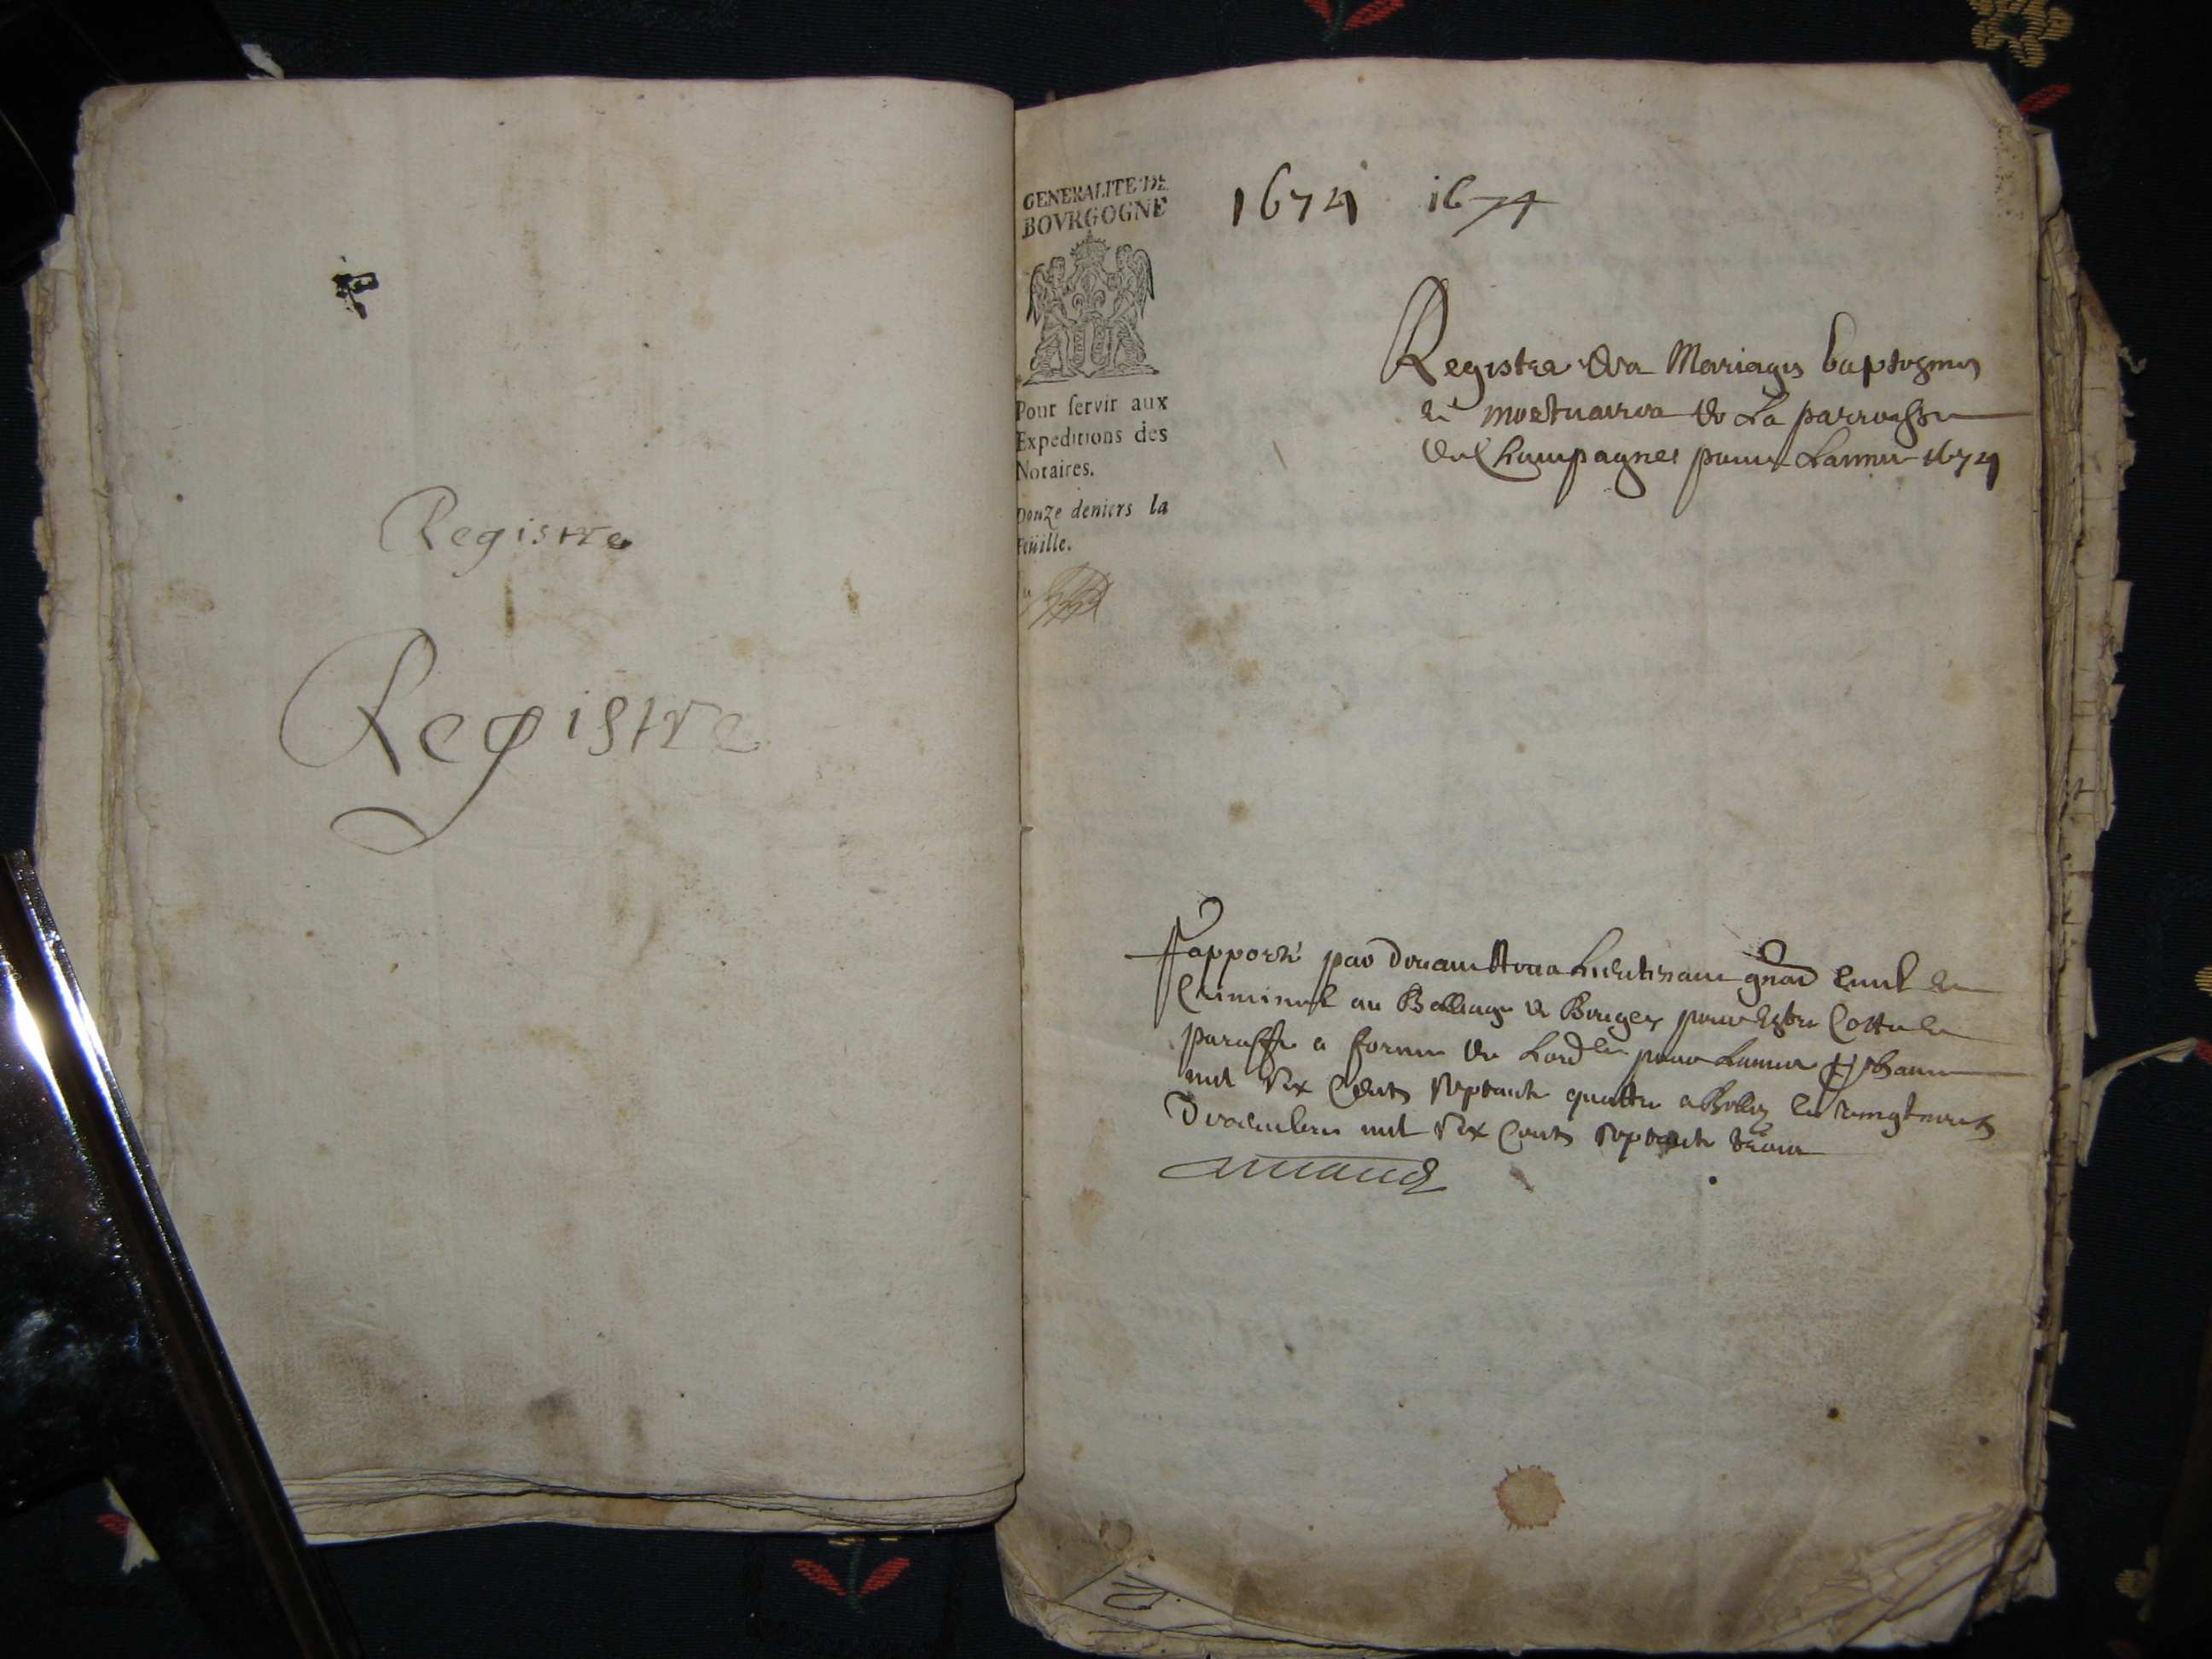 Registre
Registre
GENERALITE DE
BOVRGOGNE
Pour servir aux
Expeditions des
Notaires.
Douze deniers la
Feüille.
1674 1674
Registre des Mariages baptesmes
et mortuaires de La parroisse
de Champagnes pour Lannee 1674
Rapporté par devant nous Lieutenant gnal civil et
Criminel au Balliage de Bougey pour estre Cotté et
paraffé a forme de Lord.ce pour Lannee prochaine
mil six Cents septante quattre a Belley le vingt neuf
Decembre mil six Cents septante trois